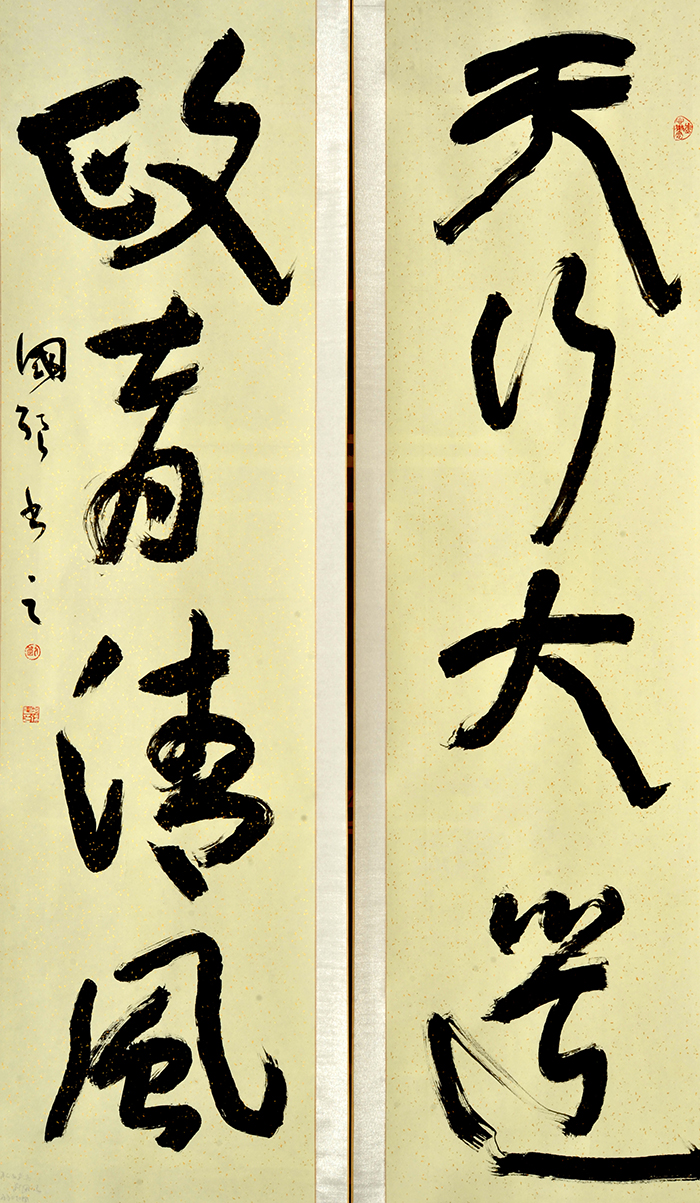 天行大道
政有清風
國琴書之